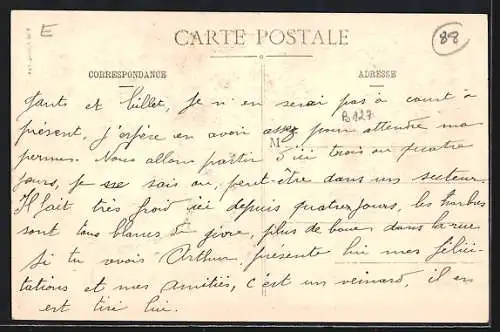 E
CARTE POSTALE
88
CORRESPONDANCE
ADRESSE
gants et billet, je n'en serai pas à court à
B127
présent, j'espère en avoir assez pour attendre ma
M
permes. Nous allons partir d'ici trois ou quatre
jours, je sse sais ou, peut-être dans un secteur.
Il fait très froid ici depuis quatre jours, les
sont tous blancs de givre, plus de boue dans la rue
Si tu vois Arthur, présente lui mes félici-
tations et mes amitiés, c'est un veinard, il en
est tiré lui.